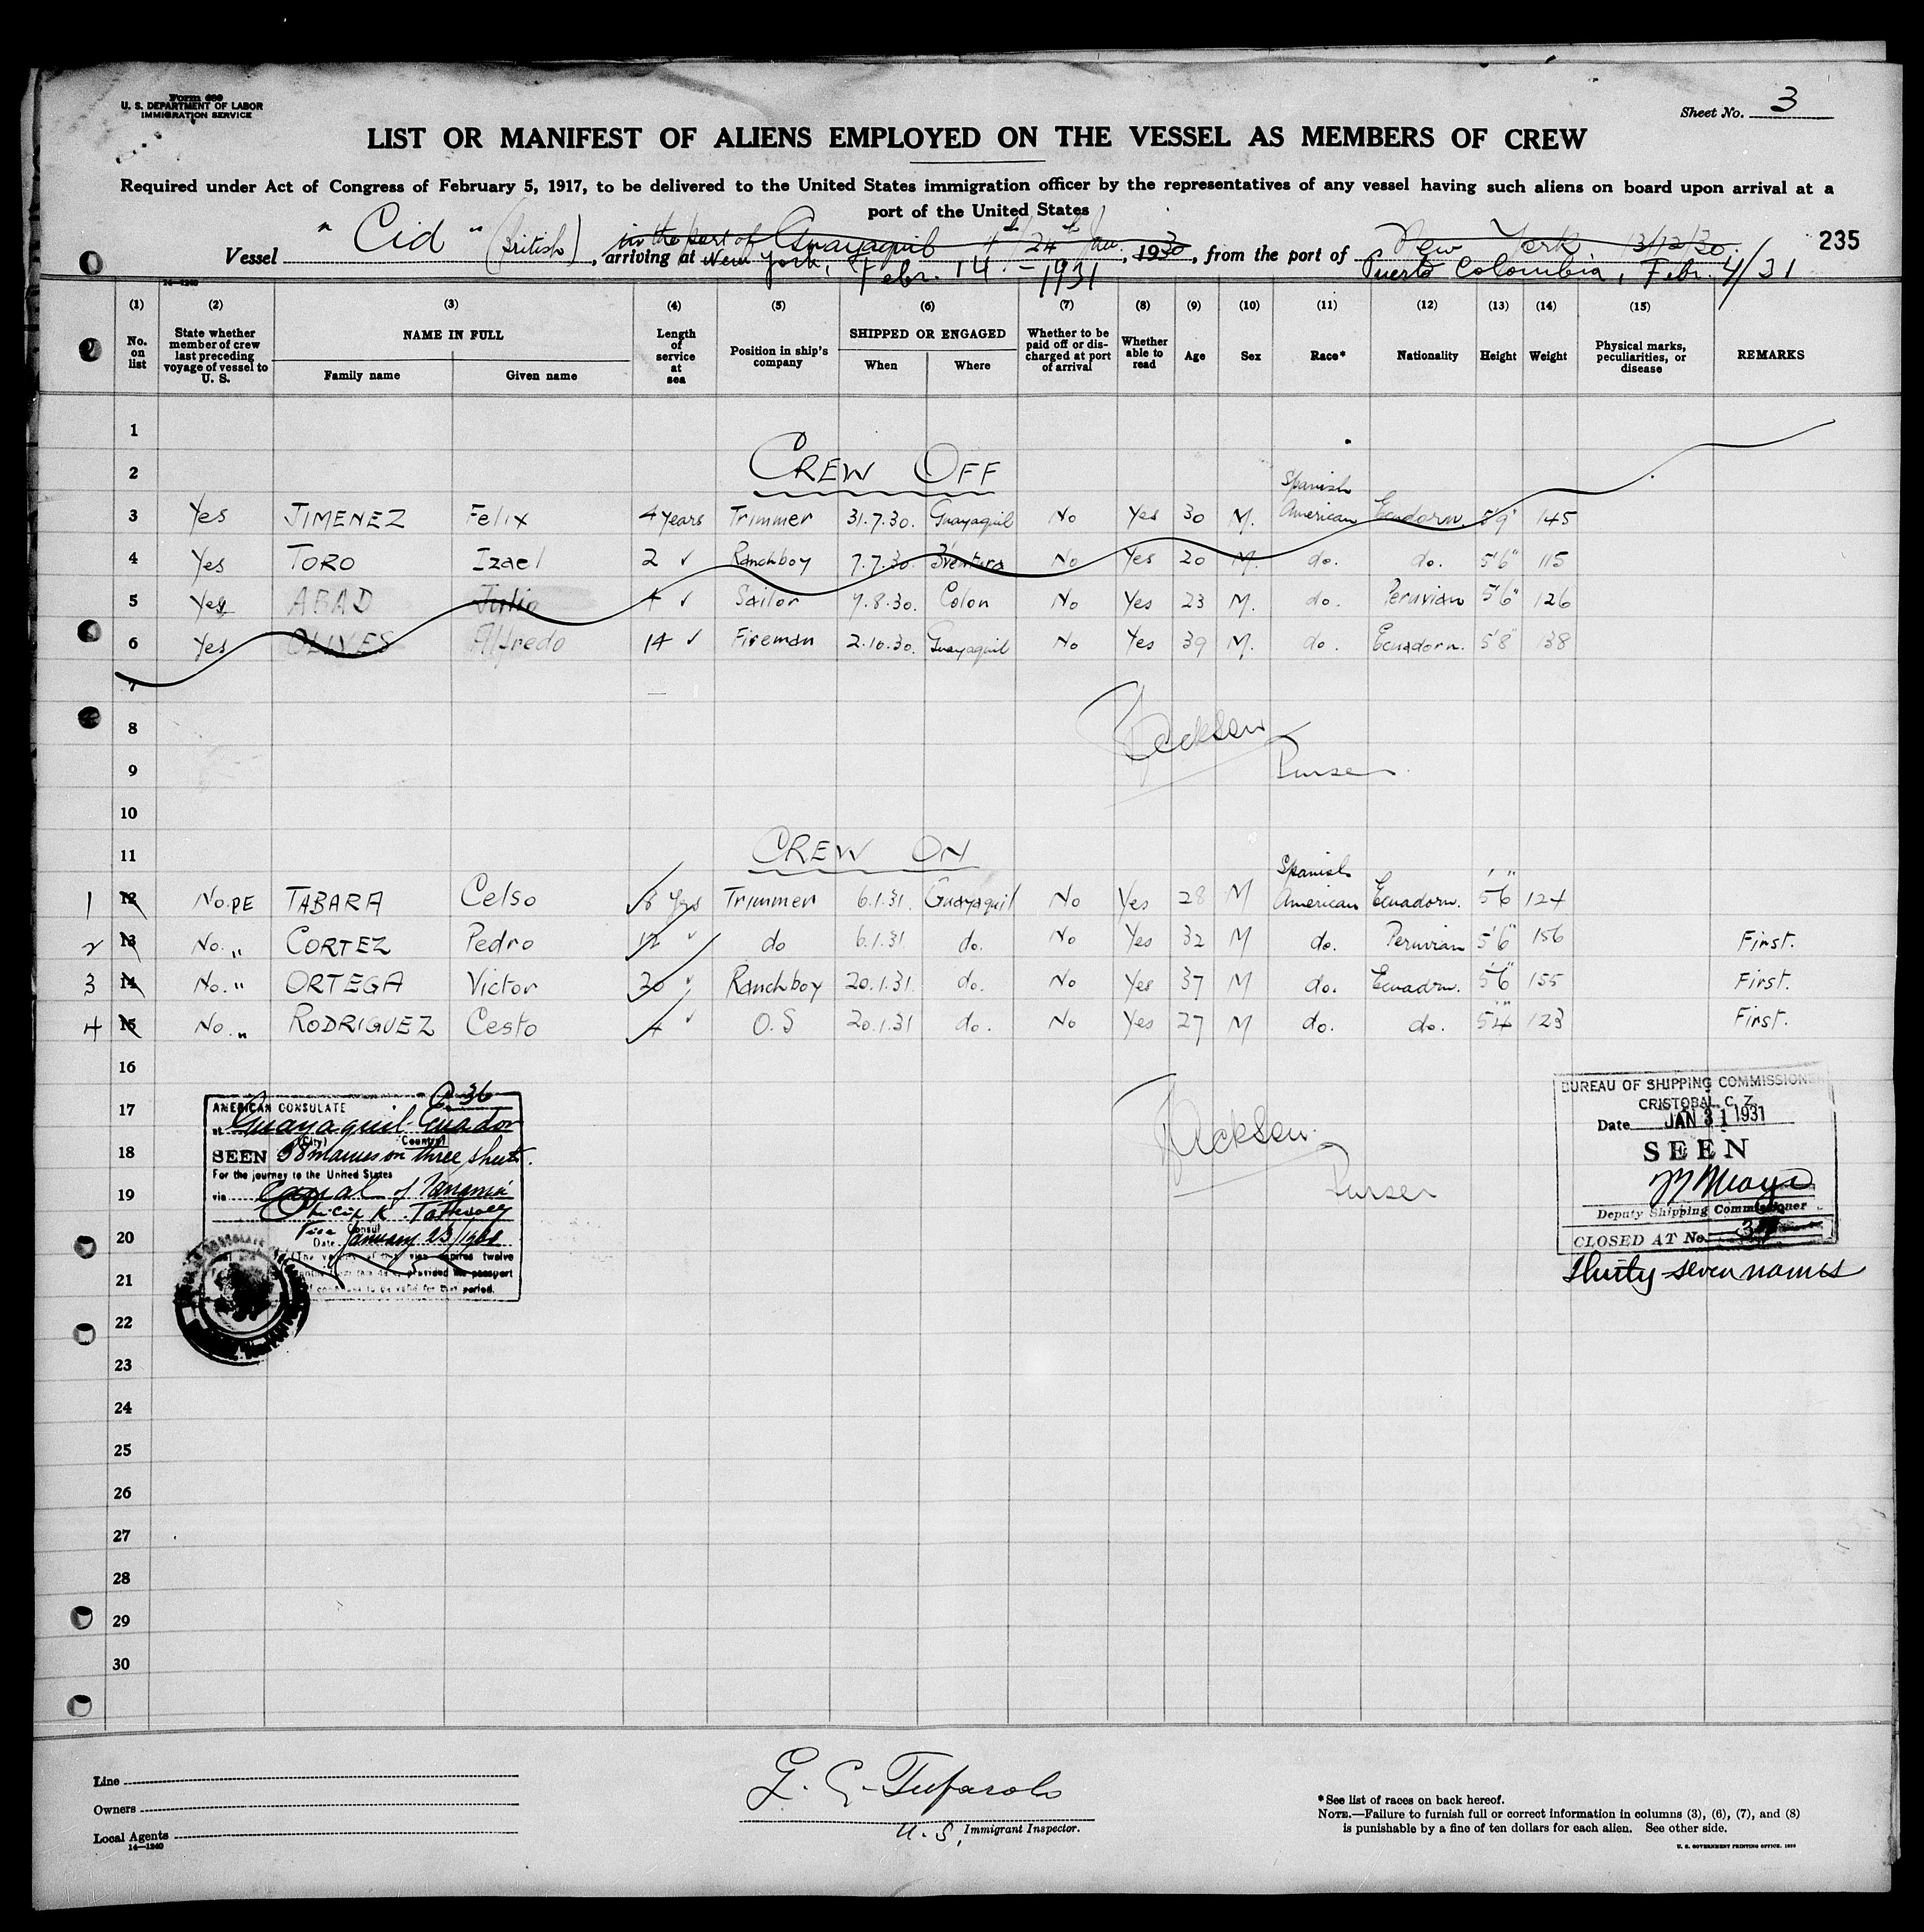 Form 680
U. S. DEPARTMENT OF LABOR
IMMIGRATION SERVICE
Sheet No. 3
LIST OR MANIFEST OF ALIENS EMPLOYED ON THE VESSEL AS MEMBERS OF CREW
Required under Act of Congress of February 5, 1917, to be delivered to the United States immigration officer by the representatives of any vessel having such aliens on board upon arrival at a
port of the United States
in the port of Guayaquil 4th/24th Jan. New York 13/12/30.
Vessel "Cid" (British), arriving at New York, Febr. 14. - 1931, 1930, from the port of Puerto Colombia, Febr. 4/31
235
14—1240
(1) (2) (3) (4) (5) (6) (7) (8) (9) (10) (11) (12) (13) (14) (15)
No. on list State whether member of crew last preceding voyage of vessel to U. S. NAME IN FULL Family name Given name Length of service at sea Position in ship's company SHIPPED OR ENGAGED When Where Whether to be paid off or discharged at port of arrival Whether able to read Age Sex Race* Nationality Height Weight Physical marks, peculiarities, or disease REMARKS
1
2 CREW OFF
3 Yes JIMENEZ Felix 4 years Trimmer 31.7.30. Guayaquil No Yes 30 M. Spanish American Ecuadorn. 5'9" 145
4 Yes TORO Izael 2 ✓ Ranchboy 7.7.30. B'ventura No Yes 20 M. do. do. 5'6" 115
5 Yes ABAD Julio ✓ Sailor 7.8.30. Colon No Yes 23 M. do. Peruvian 5'6" 126
6 Yes OLIVES Alfredo 14 ✓ Fireman 2.10.30. Guayaquil No Yes 39 M. do. Ecuadorn. 5'8" 138
7
8
9 Purser
10
11 CREW ON
1 12 No. PE TABARA Celso 8 yrs Trimmer 6.1.31. Guayaquil No Yes 28 M Spanish American Ecuadorn. 5'6" 124
2 13 No. " CORTEZ Pedro 12 ✓ do 6.1.31. do. No Yes 32 M do. Peruvian 5'6" 156 First.
3 14 No. " ORTEGA Victor 20 ✓ Ranchboy 20.1.31. do. No Yes 37 M do. Ecuadrn. 5'6" 155 First.
4 15 No. " RODRIGUEZ Cesto 4 ✓ O.S 20.1.31 do. No Yes 27 M do. do. 5'4" 123 First.
16
17
18
19 Purser
20
21
22
23
24
25
26
27
28
29
30
AMERICAN CONSULATE
at Guayaquil Ecuador
(City) Country
SEEN 38 names on three sheets.
For the journey to the United States
via Canal of Panamá
Vice Consul
Date January 23/1931
BUREAU OF SHIPPING COMMISSIONER
CRISTOBAL, C. Z.
Date JAN 31 1931
SEEN
Deputy Shipping Commissioner
CLOSED AT No. 37
Thirty-seven names
Line
Owners
Local Agents
14—1240
G. C. Tufarolo
U. S. Immigrant Inspector.
*See list of races on back hereof.
NOTE.—Failure to furnish full or correct information in columns (3), (6), (7), and (8)
is punishable by a fine of ten dollars for each alien. See other side.
U. S. GOVERNMENT PRINTING OFFICE: 1930